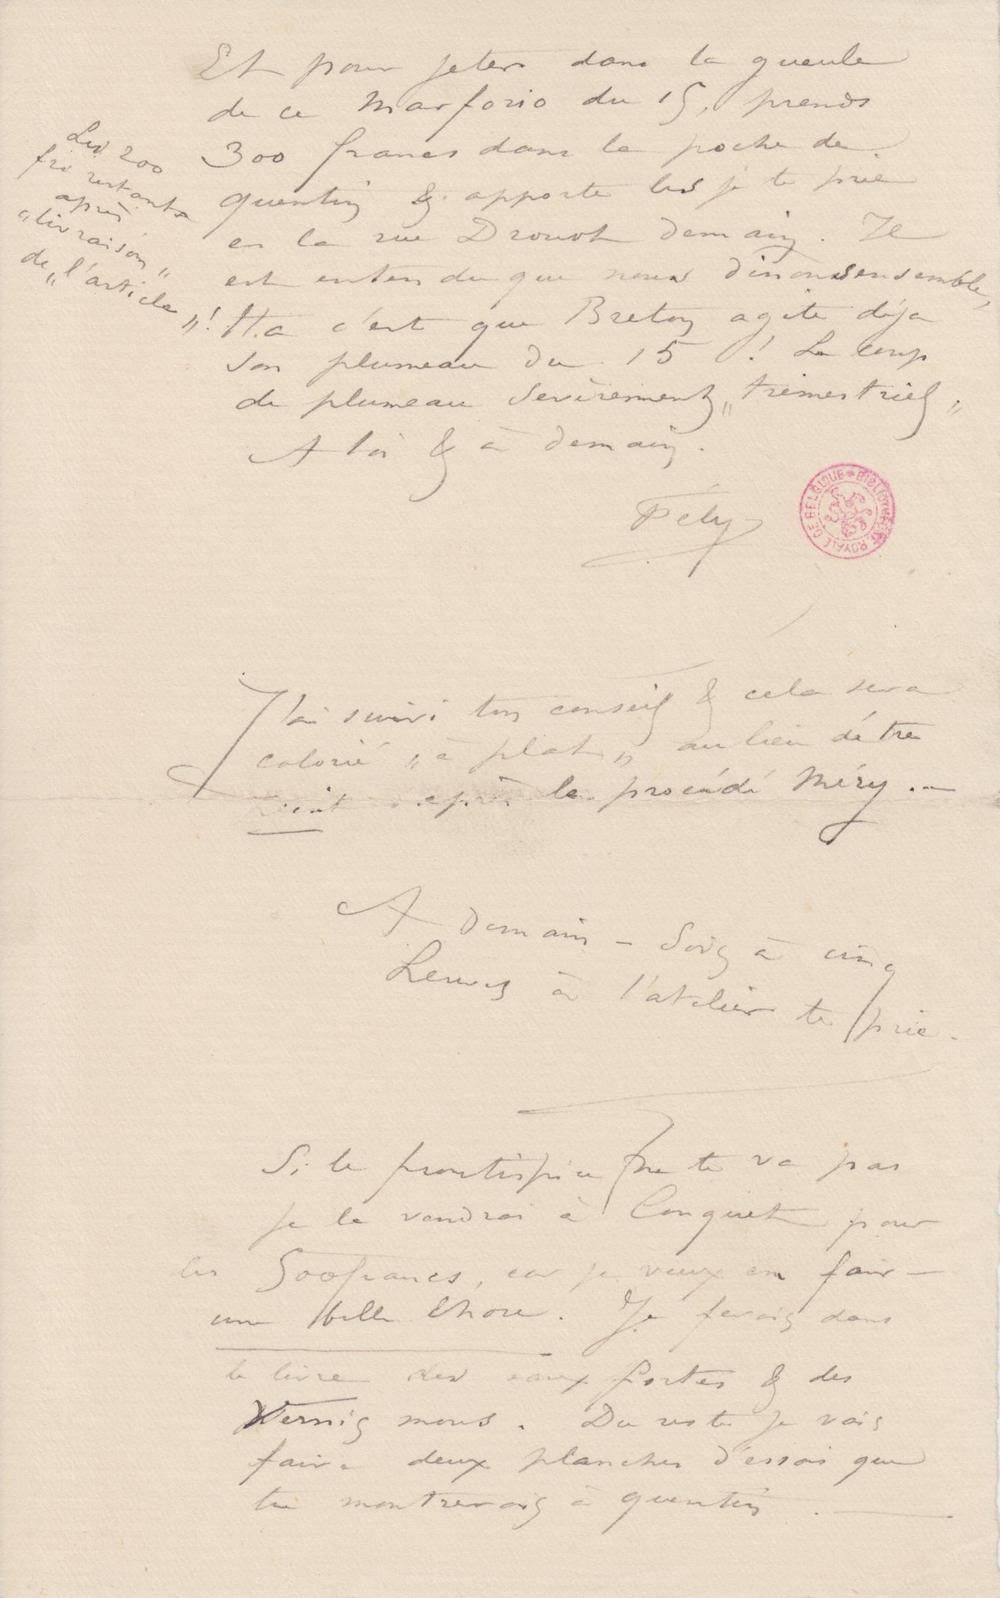 Et pour jeter dans la gueule
de ce Marforio du 15, prends
300 francs dans la poche de
quentin & apporte les je te prie
en la rue Drouot demain. Il
est entendu que nous dinons ensemble,
c'est que Breton agite déja
son plumeau du 15 ! Le coup
de plumeau sévèrement „trimestriel„.
A toi & à demain.
Les 200
frs restants
après
„livraison„
de „l'article„!
Fély
BIBLIOTHÈQUE ROYALE DE BELGIQUE
J'ai suivi ton conseil & cela sera
colorié „à plat„ au lieu d'être
d'après le procédé Méry. —
A demain — Sois à cinq
heures à l'atelier te prie.
Si le frontispice ne te va pas
je le vendrai à Conquet pour
les 500 francs, car je veux en faire
une belle chose. Je ferais dans
le livre des eaux fortes & des
Vernis mous. Du reste je vais
faire deux planches d'essais que
tu montrerais à quentin. —